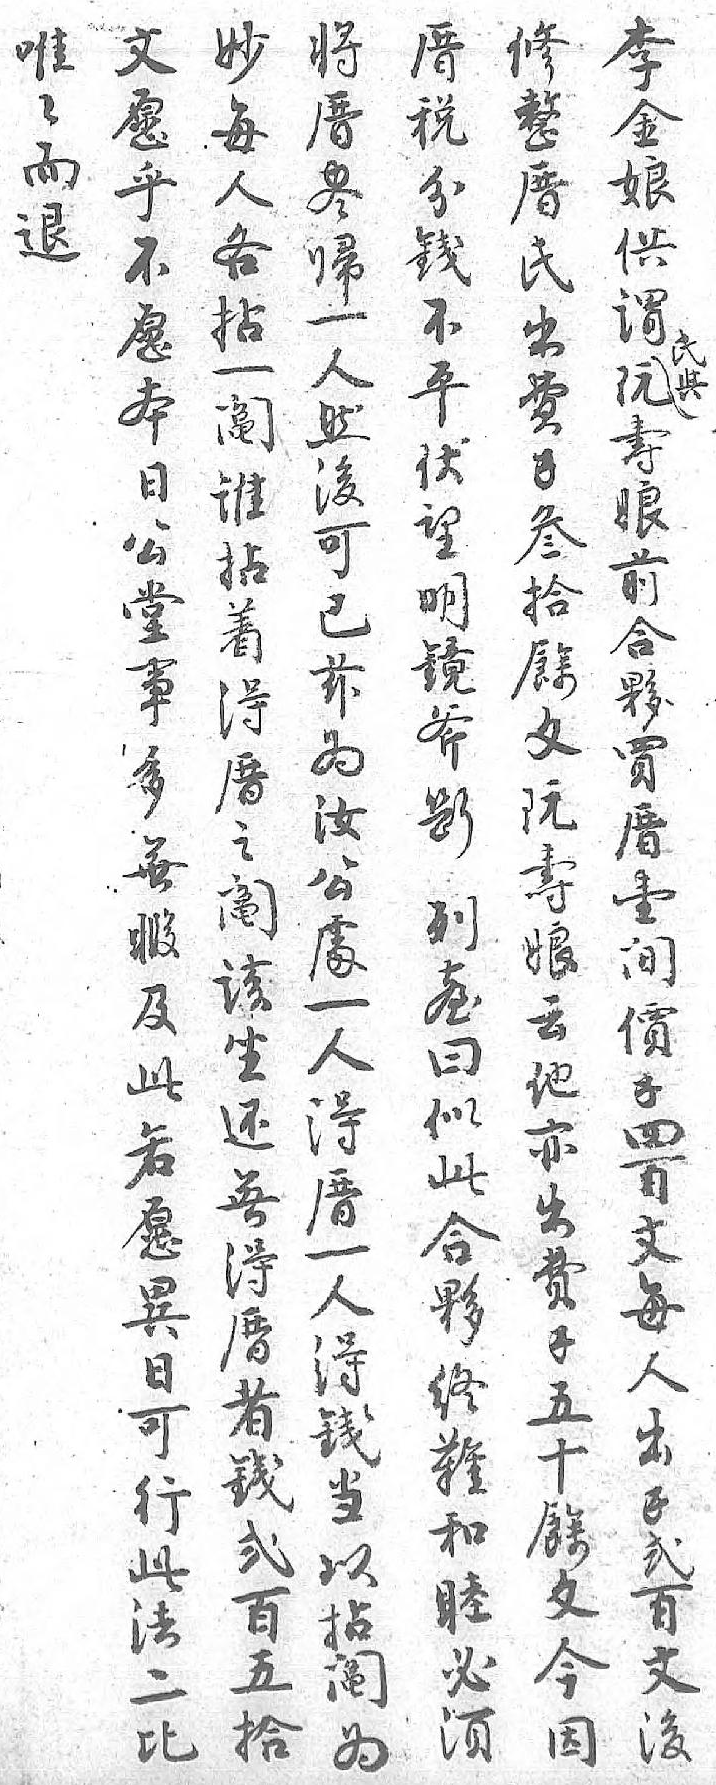 李金娘供謂氏與阮壽娘前合夥買厝壹间價子四百文每人出子弍百文後
修整厝氏出費子叁拾餘文阮壽娘云他亦出費子五十餘文今因
厝税分錢不平伏望明鏡斧断列台曰似此合夥终難和睦必須
将厝尽歸一人然後可已兹为汝公處一人得厝一人得錢当以拈阄为
妙每人各拈一阄誰拈着得厝之阄該坐还無得厝者錢弍百五拾
文愿乎不愿本日公堂事多無暇及此若愿異日可行此法二比
唯〻而退